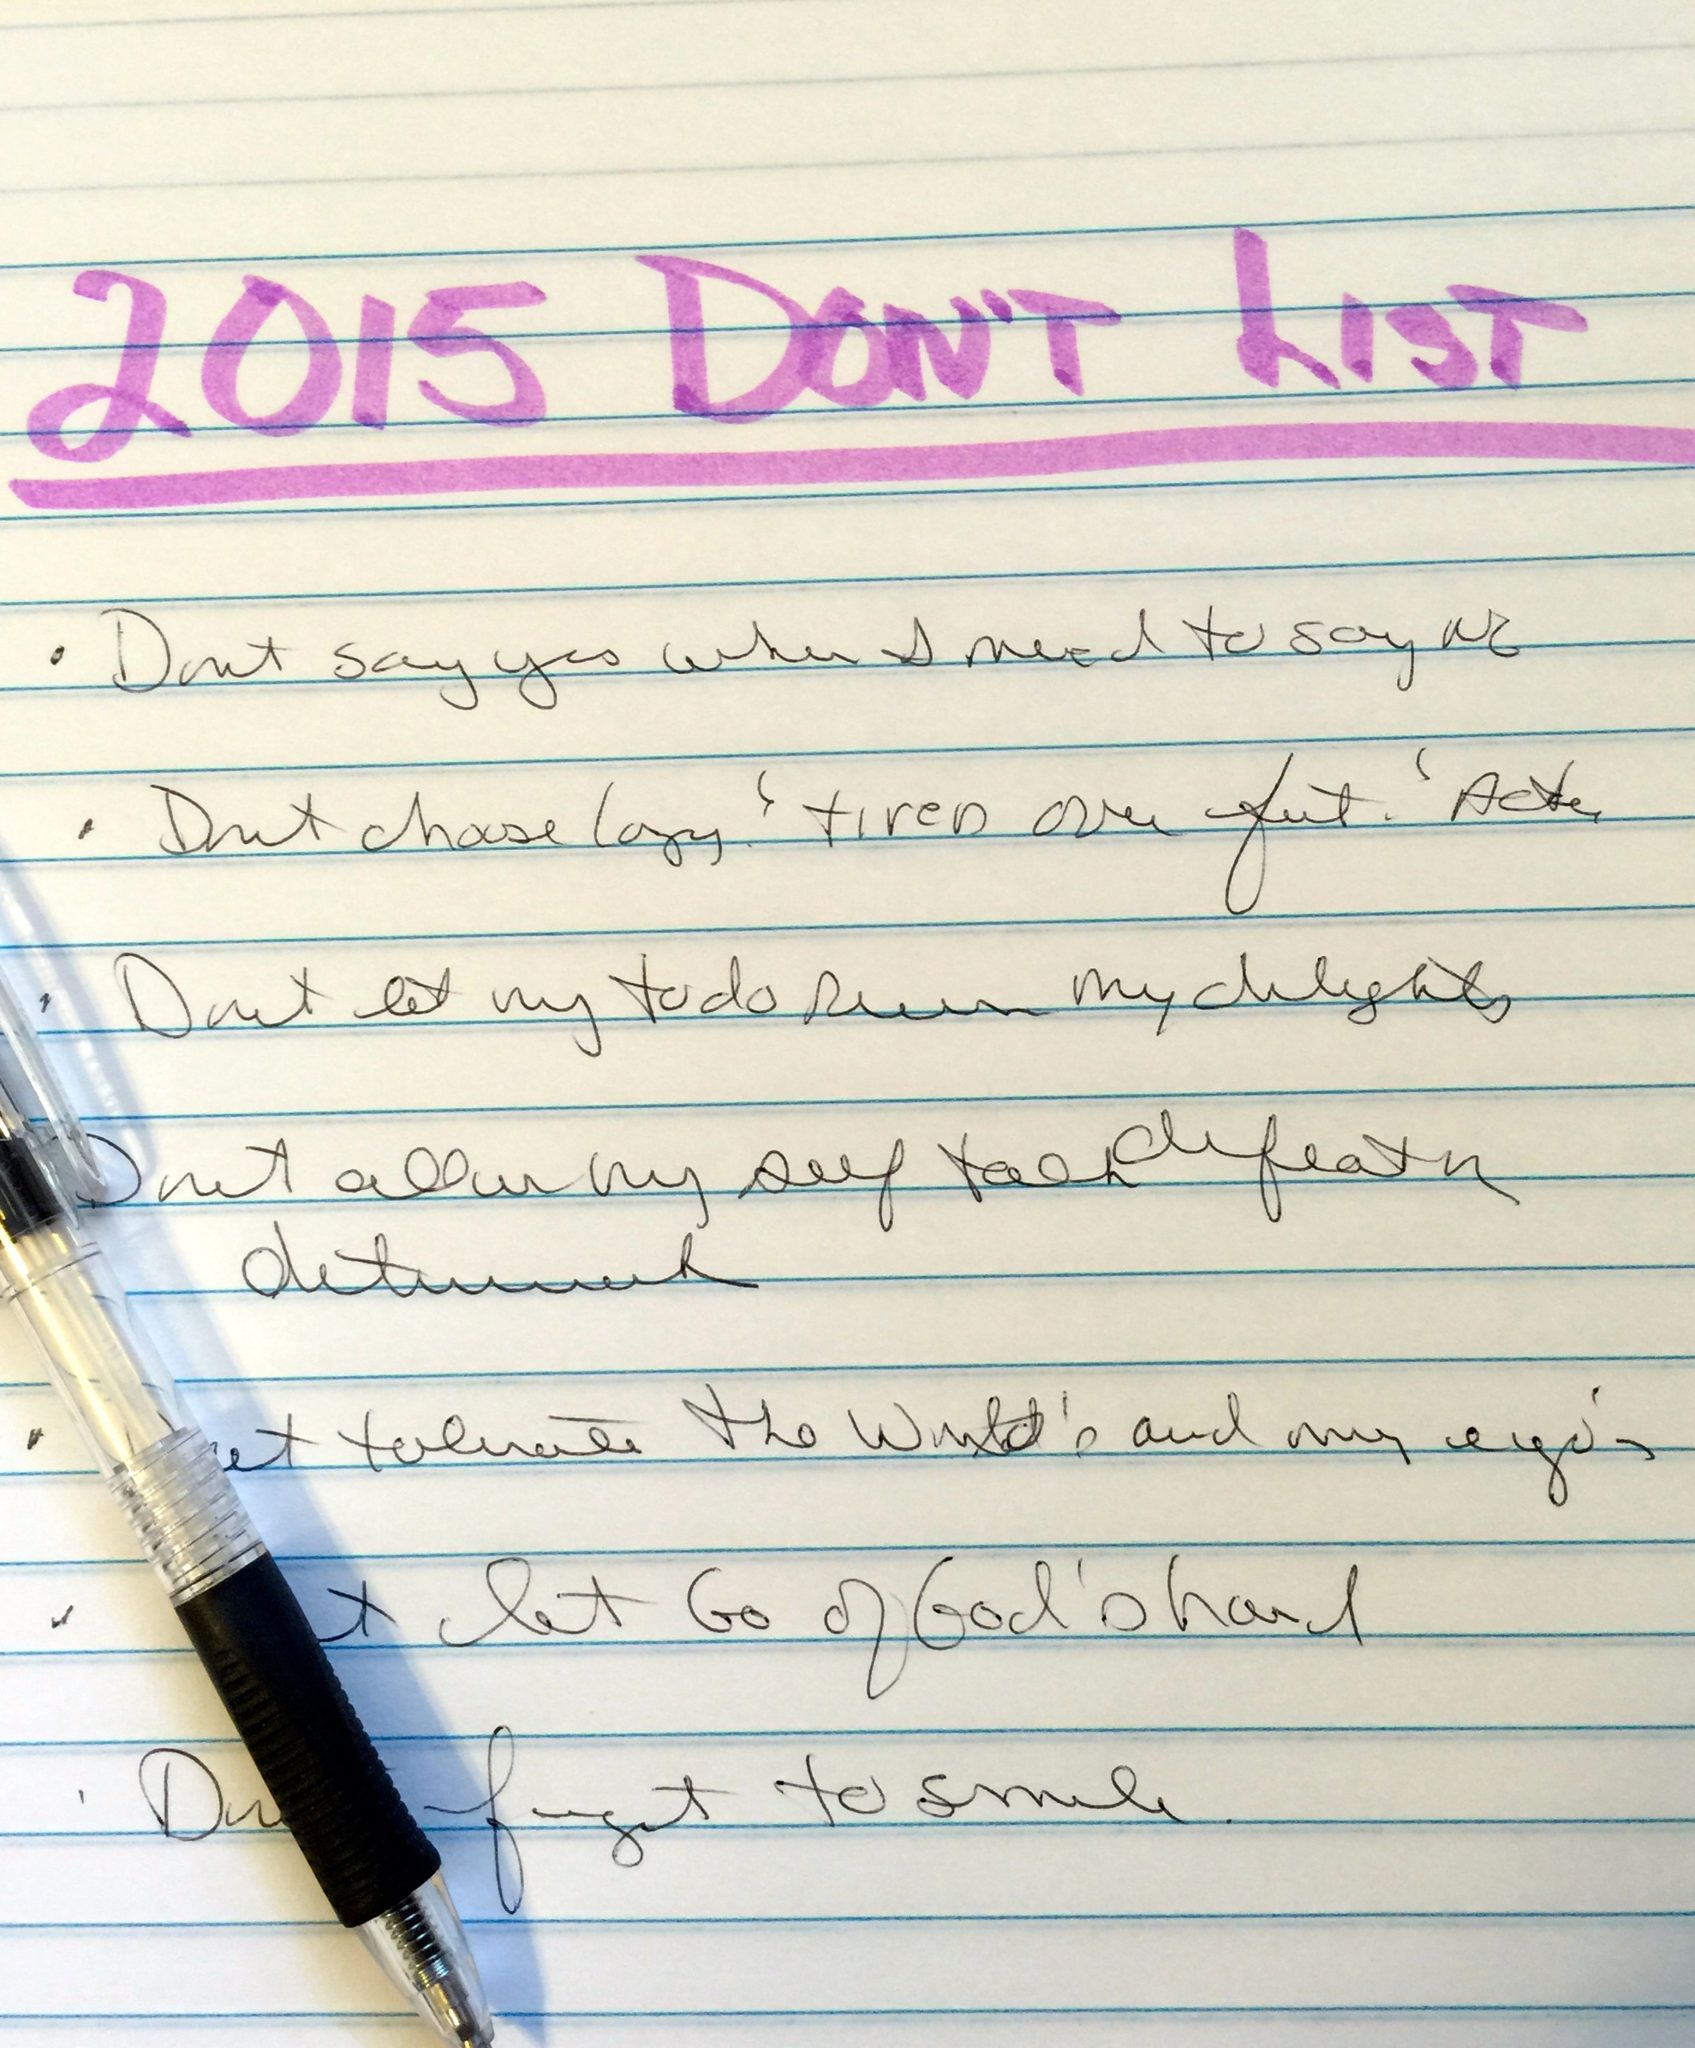 2015 DON'T LIST
• Dont say yes when I need to say no
• Dont choose lazy, 'tired over fut.'
• Dont let my todo ruin my delights
Dont allow my self talk defeat or
determine
• tolerate the World's and my ego's
• let Go of God's hand
• forget to smile.